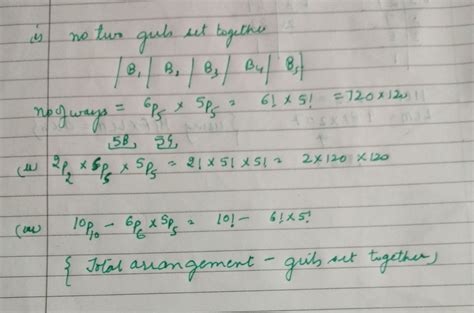 i) no two girls sit together
| B₁ | B₂ | B₃ | B₄ | B₅ |
no of ways = ⁶P₅ × ⁵P₅ = 6! × 5! = 720 × 120
5B, 5G,
(ii) ²P₂ × ⁵P₅ × ⁵P₅ = 2! × 5! × 5! = 2 × 120 × 120
(iii) ¹⁰P₁₀ – ⁶P₆ × ⁵P₅ = 10! – 6! × 5!
{ Total arrangement – girls sit together }